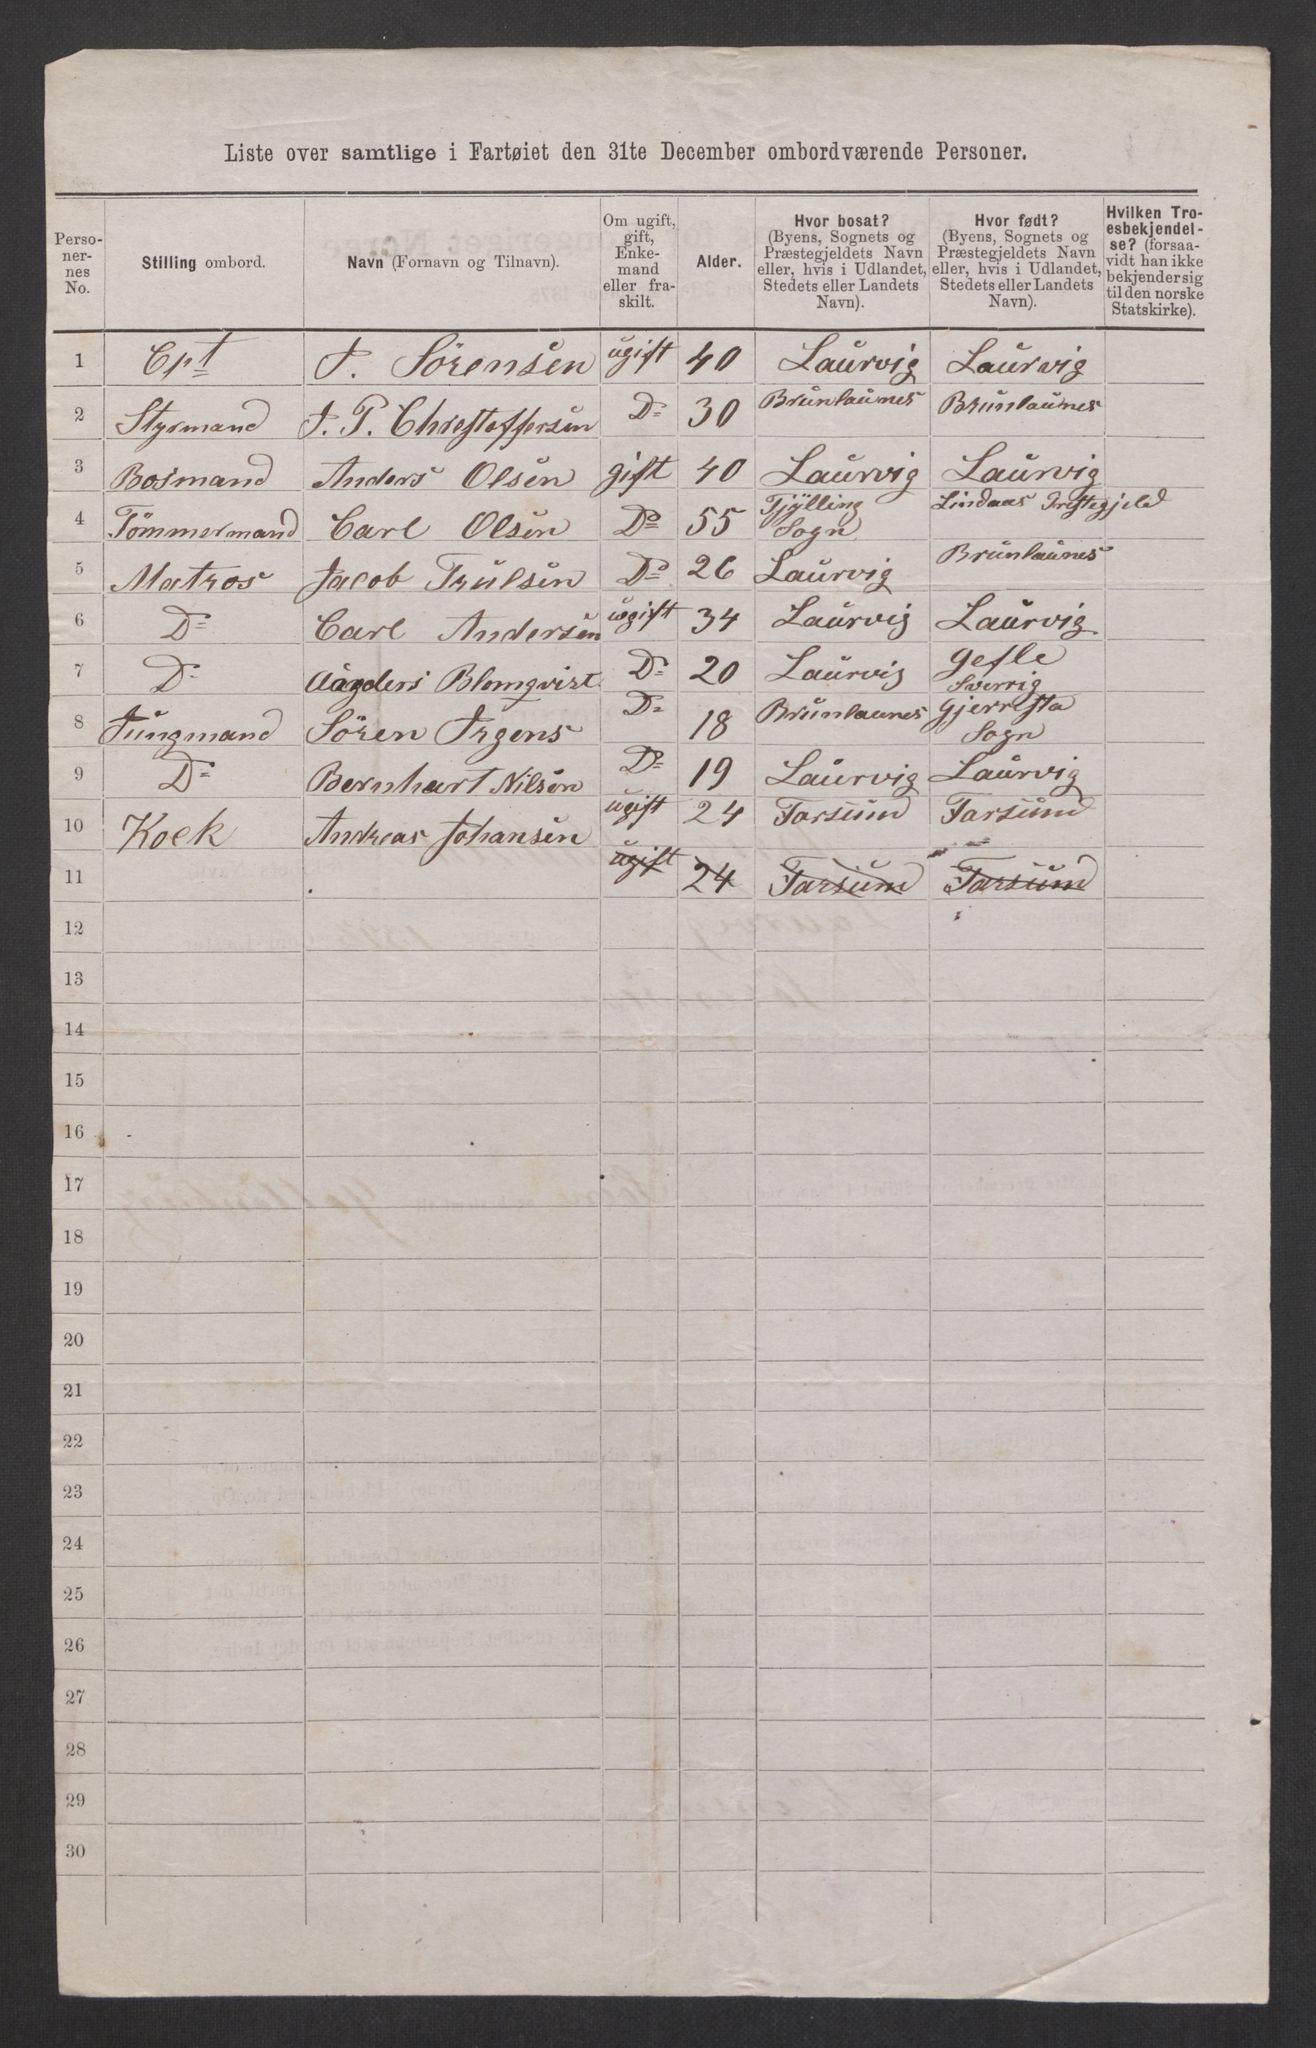 Liste over samtlige i Fartøiet den 31te December ombordværende Personer.
Perso-
ner-
nes
No.
Stilling ombord.
Navn (Fornavn og Tilnavn).
Om ugift,
gift,
Enke-
mand
eller fra-
skilt.
Alder.
Hvor bosat?
(Byens, Sognets og
Præstegjeldets Navn
eller, hvis i Udlandet,
Stedets eller Landets
Navn).
Hvor født?
(Byens, Sognets og
Præstegjeldets Navn
eller, hvis i Udlandet,
Stedets eller Landets
Navn).
Hvilken Tro-
esbekjendel-
se? (forsaa-
vidt han ikke
bekjender sig
til den norske
Statskirke).
1 Cpt J. Sörensen ugift 40 Laurvig Laurvig
2 Styrmand J. P. Chrestoffersen Do 30 Brunlaunes Brunlaunes
3 Bosmand Anders Olsen gift 40 Laurvig Laurvig
4 Tömmermand Carl Olsen Do 55 Tjylling Sogn Lindaas Prestegjeld
5 Matros Jacob Trulsen Do 26 Laurvig Brunlaunes
6 Do Carl Andersen ugift 34 Laurvig Laurvig
7 Do Blomqvist Do 20 Laurvig Gefle Sverrig
8 Jungmand Sören Irgens Do 18 Brunlaunes Gjerresta Sogn
9 Do Bernhart Nilsen Do 19 Laurvig Laurvig
10 Kock Andreas Johansen ugift 24 Farsund Farsund
11 ugift 24 Farsund Farsund
12
13
14
15
16
17
18
19
20
21
22
23
24
25
26
27
28
29
30